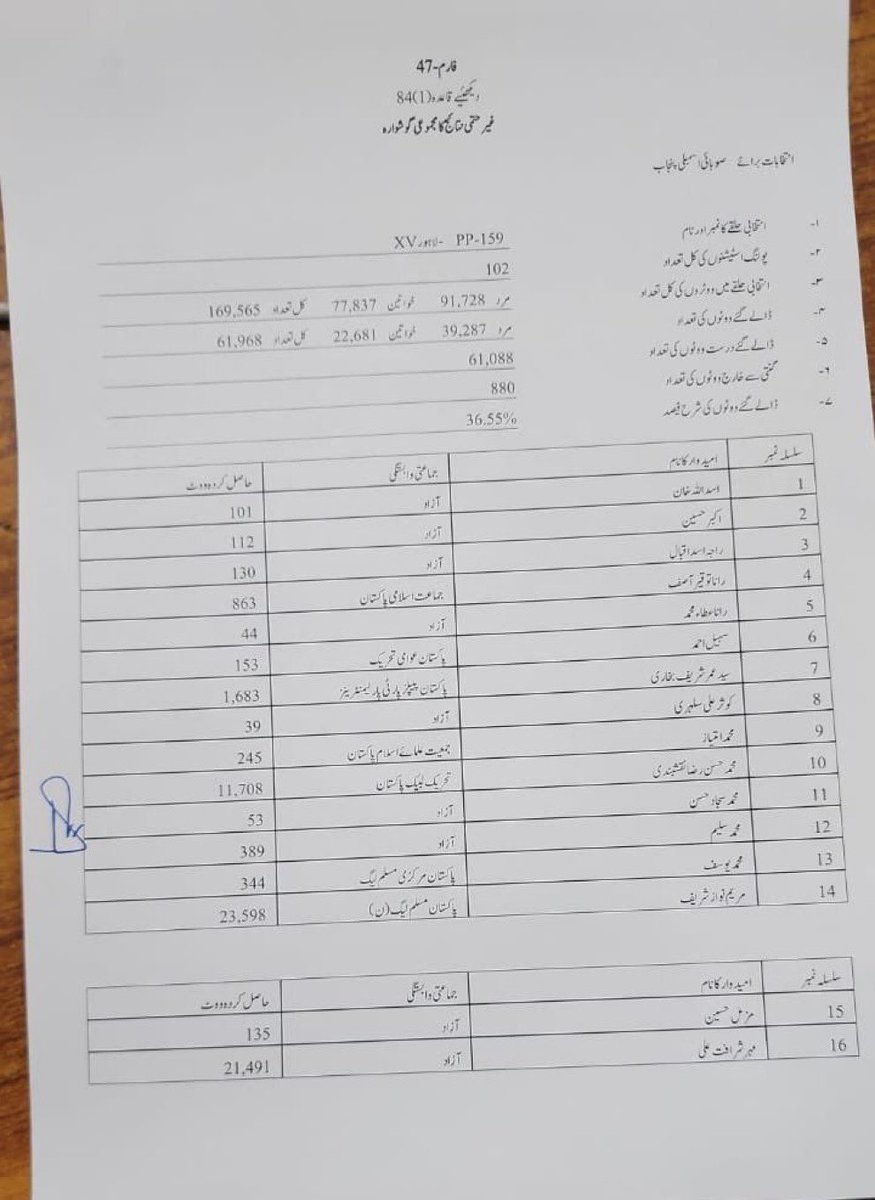 فارم-47
دیکھئیے قاعدہ(1)84
غیر حتمی نتائج کا مجموعی گوشوارہ
انتخابات برائے - صوبائی اسمبلی پنجاب
۱- انتخابی حلقے کا نمبر اور نام PP-159 -لاہور XV
۲- پولنگ اسٹیشنوں کی کل تعداد 102
۳- انتخابی حلقے میں ووٹروں کی کل تعداد مرد 91,728 خواتین 77,837 کل تعداد 169,565
۴- ڈالے گئے ووٹوں کی تعداد مرد 39,287 خواتین 22,681 کل تعداد 61,968
۵- ڈالے گئے درست ووٹوں کی تعداد 61,088
۶- گنتی سے خارج ووٹوں کی تعداد 880
۷- ڈالے گئے ووٹوں کی شرح فیصد 36.55%
سلسلہ نمبر امیدوار کا نام جماعتی وابستگی حاصل کردہ ووٹ
1 اسد اللہ خان آزاد 101
2 اکبر حسین آزاد 112
3 راجہ اسد اقبال آزاد 130
4 رانا توقیر آصف جماعت اسلامی پاکستان 863
5 رانا عطاء محمد آزاد 44
6 سہیل احمد پاکستان عوامی تحریک 153
7 سید عمر شریف بخاری پاکستان پیپلز پارٹی پارلیمنٹرینز 1,683
8 کوثر علی سلہری آزاد 39
9 محمد امتیاز جمعیت علمائے اسلام پاکستان 245
10 محمد حسن رضا نقشبندی تحریک لبیک پاکستان 11,708
11 محمد سجاد حسن آزاد 53
12 محمد سلیم آزاد 389
13 محمد یوسف پاکستان مرکزی مسلم لیگ 344
14 مریم نواز شریف پاکستان مسلم لیگ (ن) 23,598
سلسلہ نمبر امیدوار کا نام جماعتی وابستگی حاصل کردہ ووٹ
15 مزمل حسین آزاد 135
16 مہر شرافت علی آزاد 21,491